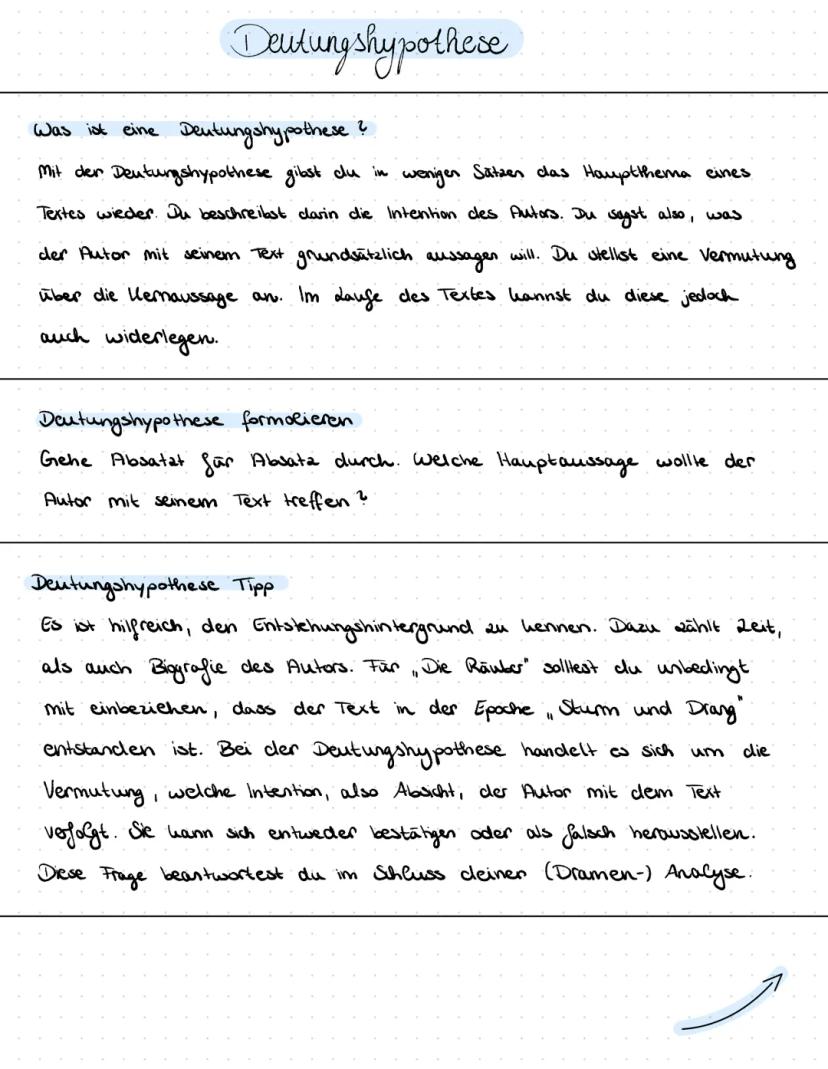 Deutungshypothese
Was ist eine Deutungshypothese?
Mit der Deutungshypothese gibst du in wenigen Sätzen das Hauptthema eines
Textes wieder. Du beschreibst darin die Intention des Autors. Du sagst also, was
der Autor mit seinem Text grundsätzlich aussagen will. Du stellst eine Vermutung
über die Kernaussage an. Im Laufe des Textes kannst du diese jedoch
auch widerlegen.
Deutungshypothese formulieren
Gehe Absatzt für Absatz durch. Welche Hauptaussage wollte der
Autor mit seinem Text treffen?
Deutungshypothese Tipp
Es ist hilfreich, den Entstehungshintergrund zu kennen. Dazu zählt Zeit,
als auch Biografie des Autors. Für „Die Räuber" solltest du unbedingt
mit einbeziehen, dass der Text in der Epoche „Sturm und Drang"
entstanden ist. Bei der Deutungshypothese handelt es sich um die
Vermutung, welche Intention, also Absicht, der Autor mit dem Text
verfolgt. Sie kann sich entweder bestätigen oder als falsch herausstellen.
Diese Frage beantwortest du im Schluss deiner (Dramen-) Analyse.